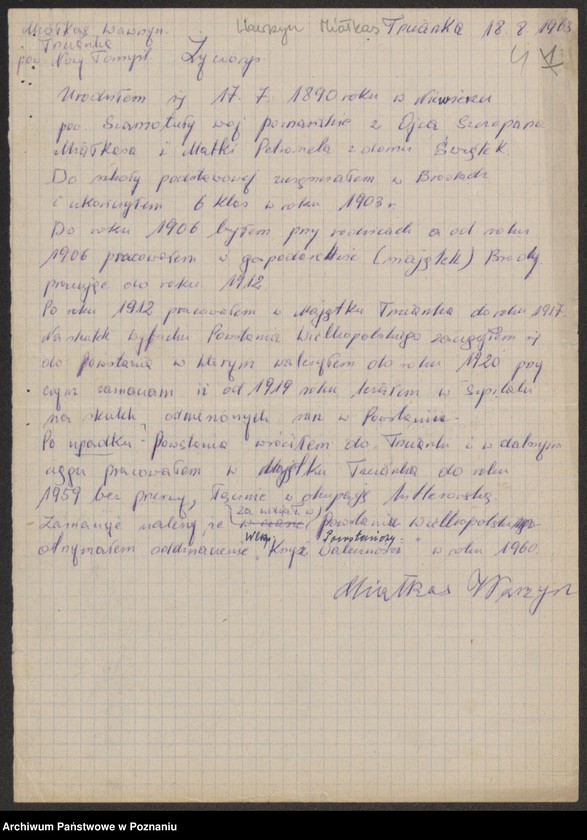 Miałkas Wawrzyn. Wawrzyn Miałkas Trzcianka 18. 8. 1963
Trzcianka
pow. Nowy Tomyśl. Życiorys
Urodziłem się 17. 7. 1890 roku w Niewierzu
pow. Szamotuły woj poznańskie z Ojca Szczepana
Miałkasa i Matki Petronela z domu Świątek.
Do szkoły podstawowej uczęszczałem w Brodach
i ukończyłem 6 klas w roku 1903 r
Do roku 1906 byłem przy rodzicach a od roku
1906 pracowałem w gospodarstwie (majątek) Brody
pracując do roku 1912
Po roku 1912 pracowałem w Majątku Trzcianka do roku 1917.
Na skutek wybuchu Powstania Wielkopolskiego zaciągłem się
do Powstania w którym walczyłem do roku 1920 przy
czym zaznaczam iż od 1919 roku leżałem w Szpitalu
na skutek odniesionych ran w Powstaniu.
Po upadku Powstania wróciłem do Trzcianki i w dalszym
ciągu pracowałem w Majątku Trzcianka do roku
1959 bez przerwy, łącznie w okupacji hitlerowskiej.
za udział w
Zaznaczyć należy, że w czasie Powstaniu Wielkopolskim
Wlkp. Powstańczy
otrzymałem odznaczenie „Krzyż w roku 1960.
Miałkas Wawrzyn
Archiwum Państwowe w Poznaniu